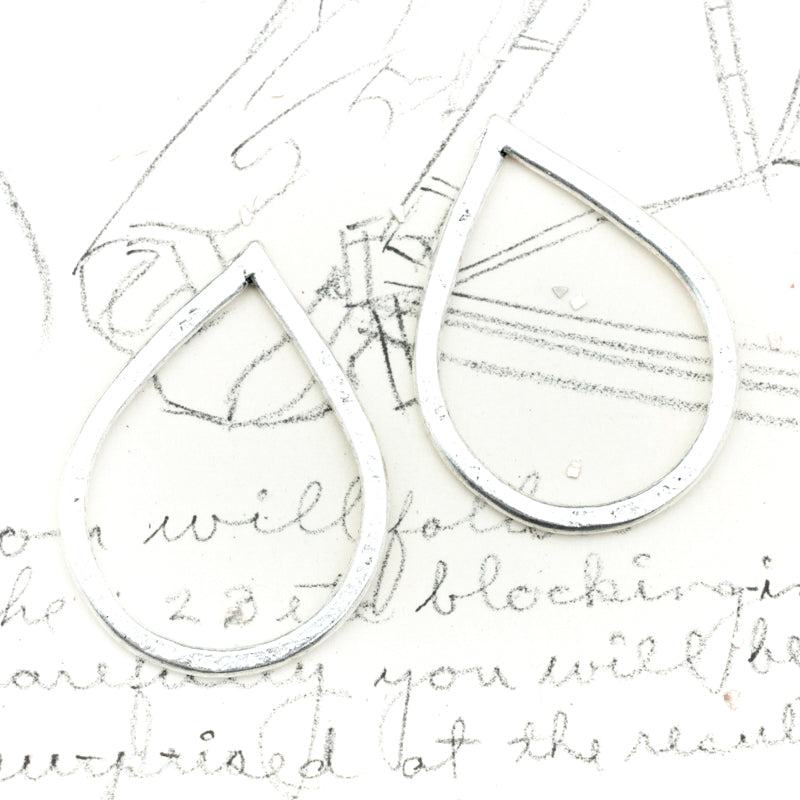 will follo
blocking-i
carefully you will be
surprised at the resul